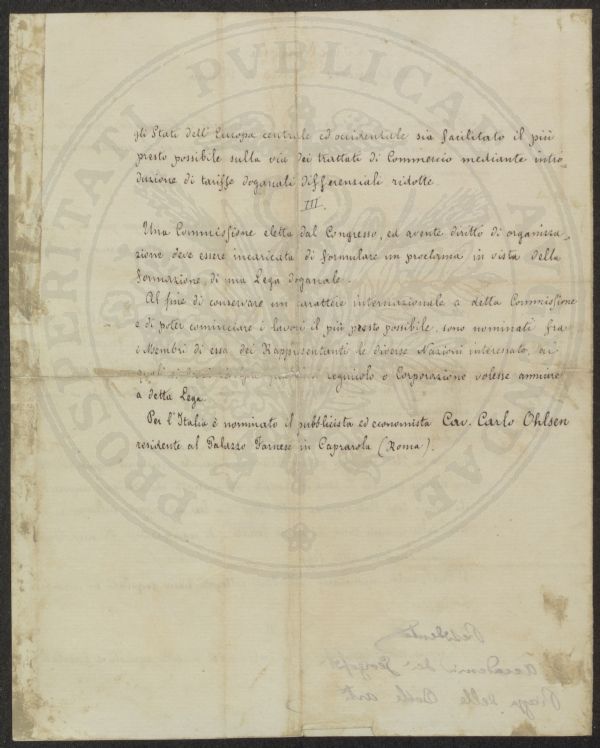 gli Stati dell'Europa centrale ed occidentale sia facilitato il più
presto possibile sulla via dei trattati di Commercio mediante intro
duzione di tariffe doganali differenziali ridotte
III.
Una Commissione eletta dal Congresso, ed avente diritto di organizza,
zione deve essere incaricata di formulare un proclama in vista della
formazione, di una Lega doganale.
Al fine di conservare un carattere internazionale a detta Commissione
e di poter cominciare i lavori il più presto possibile, sono nominati fra
i Membri di essa dei Rappresentanti le diverse Nazioni interessate, ai
quali si regnicolo o Corporazione volesse annuire
a detta Lega.
Per l'Italia è nominato il pubblicista ed economista Cav. Carlo Ohlsen
residente al Palazzo Farnese in Caprarola (Roma).
PROSPERITATI PVBLICAE
Presidente
Accademia dei Georgofili
Piazza delle Belle arti